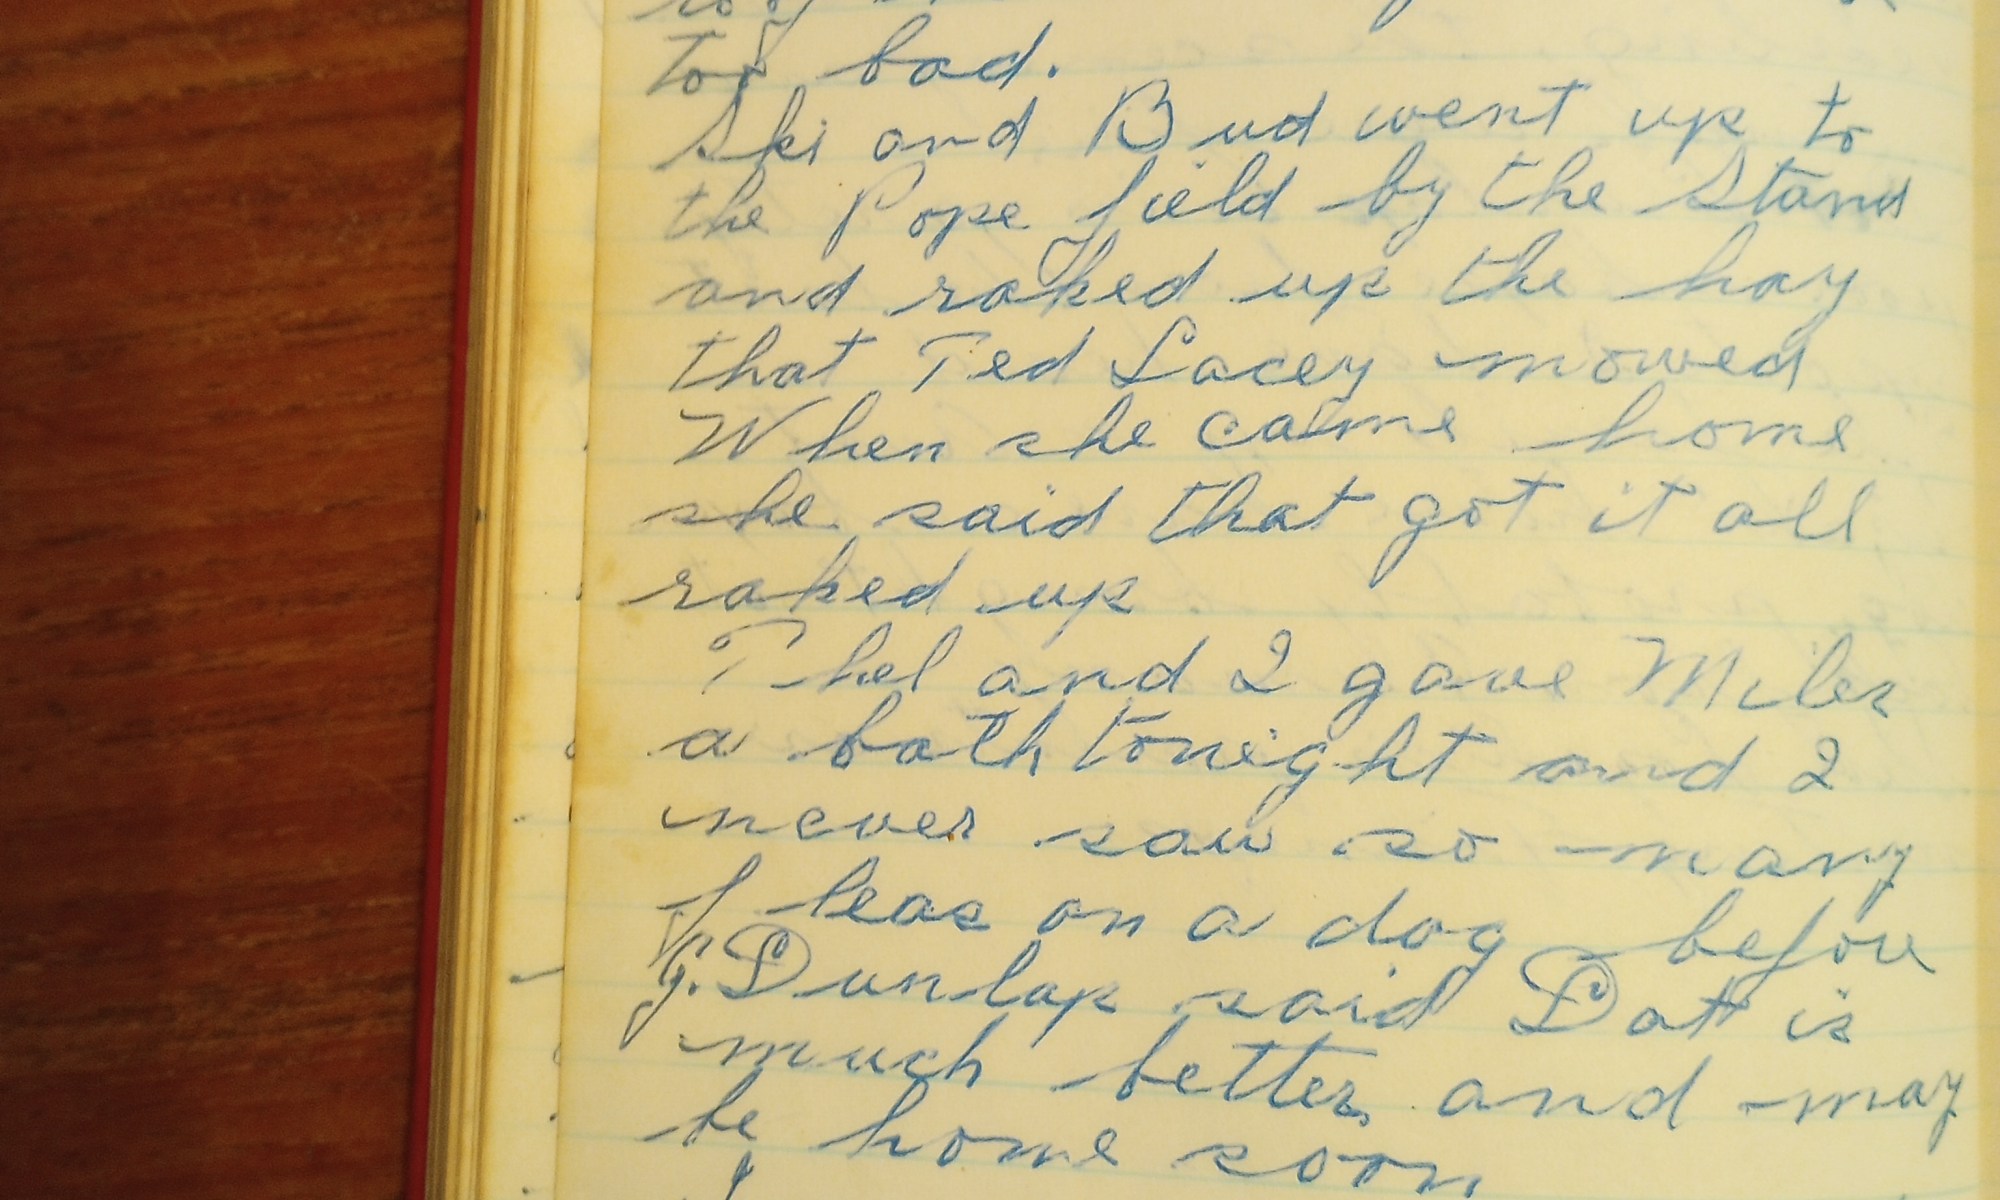 too bad.
Ski and Bud went up to
the Pope field by the Stand
and raked up the hay
that Ted Lacey mowed
When she came home
she said that got it all
raked up
Thel and I gave Miles
a bath tonight and I
never saw so many
fleas on a dog before
G. Dunlap said Dott is
much better and may
be home soon